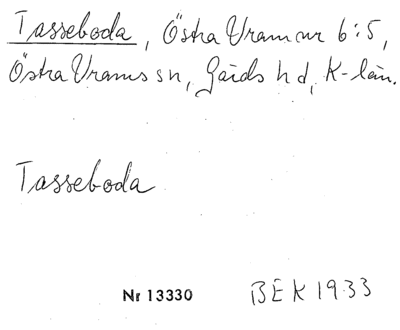 Tasseboda, Östra Vram nr 6:5,
Östra Vrams sn, Gärds hd, K-län.
Tasseboda
Nr 13330 BEK 1933